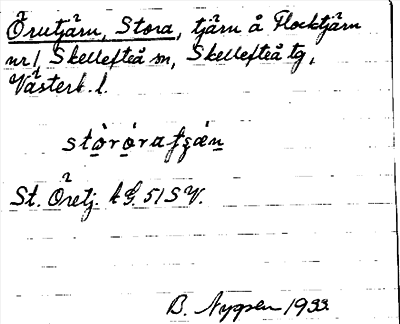 Örutjärn, Stora, tjärn å Flocktjärn
nr 1, Skellefteå sn, Skellefteå tg,
Västerb. l.
St. Öretj. kG. 51 SV.
B. Nygren 1933.